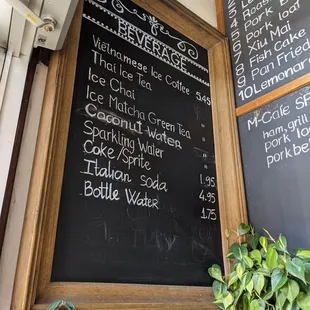 BEVERAGE
Vietnamese Ice Coffee 5.45
Thai Ice Tea "
Ice Chai "
Ice Matcha Green Tea "
Coconut Water "
Sparkling Water "
Coke/Sprite 1.95
Italian soda 4.95
Bottle Water 1.75
Pork
Pork loaf
Xiu Mai
8 Fish Cake
9 Pan Fried
10 Lemongra
M-Cafe SP
ham, grill
pork